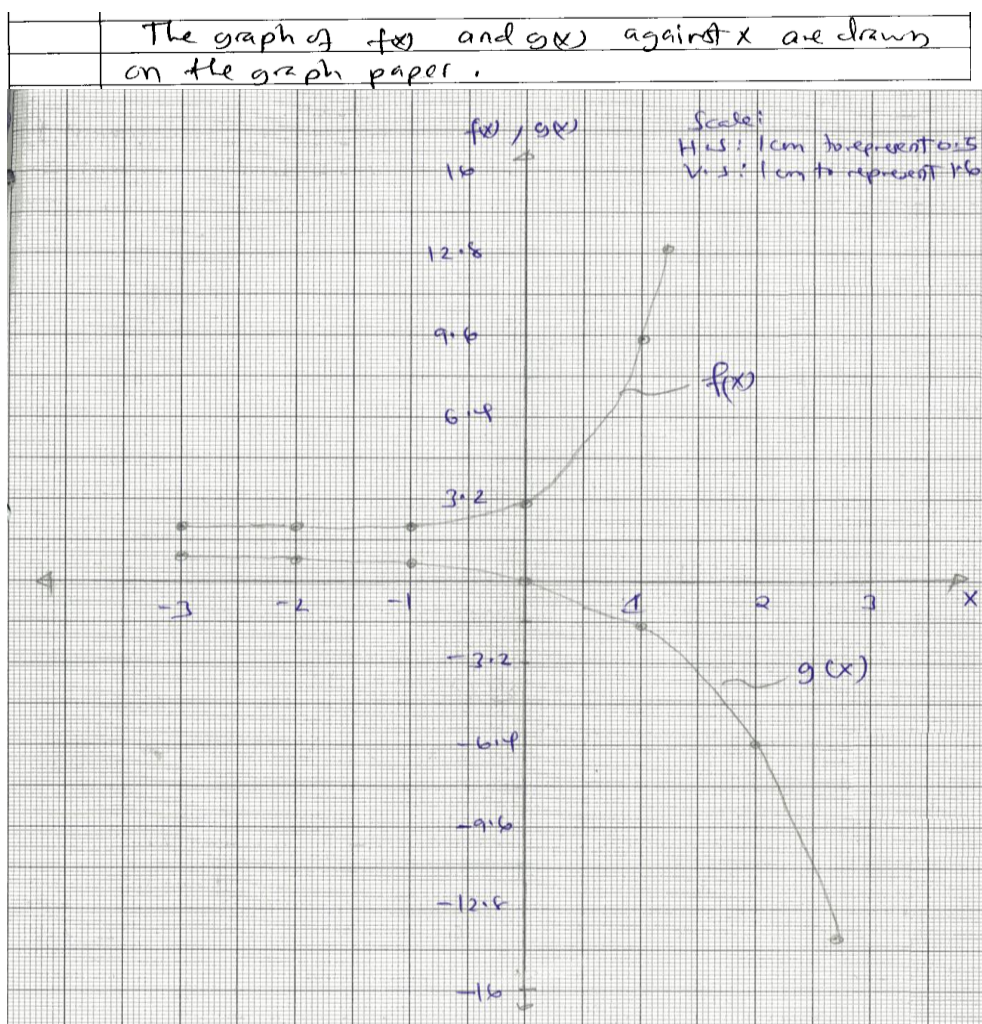 The graph of f(x) and g(x) against x are drawn
on the graph paper.
f(x), g(x)
Scale:
H.S: 1cm to represent 0.5
V.S: 1cm to represent 1.6
16
12.8
9.6
f(x)
6.4
3.2
-3 -2 -1 1 2 3 x
-3.2
g(x)
-6.4
-9.6
-12.8
-16